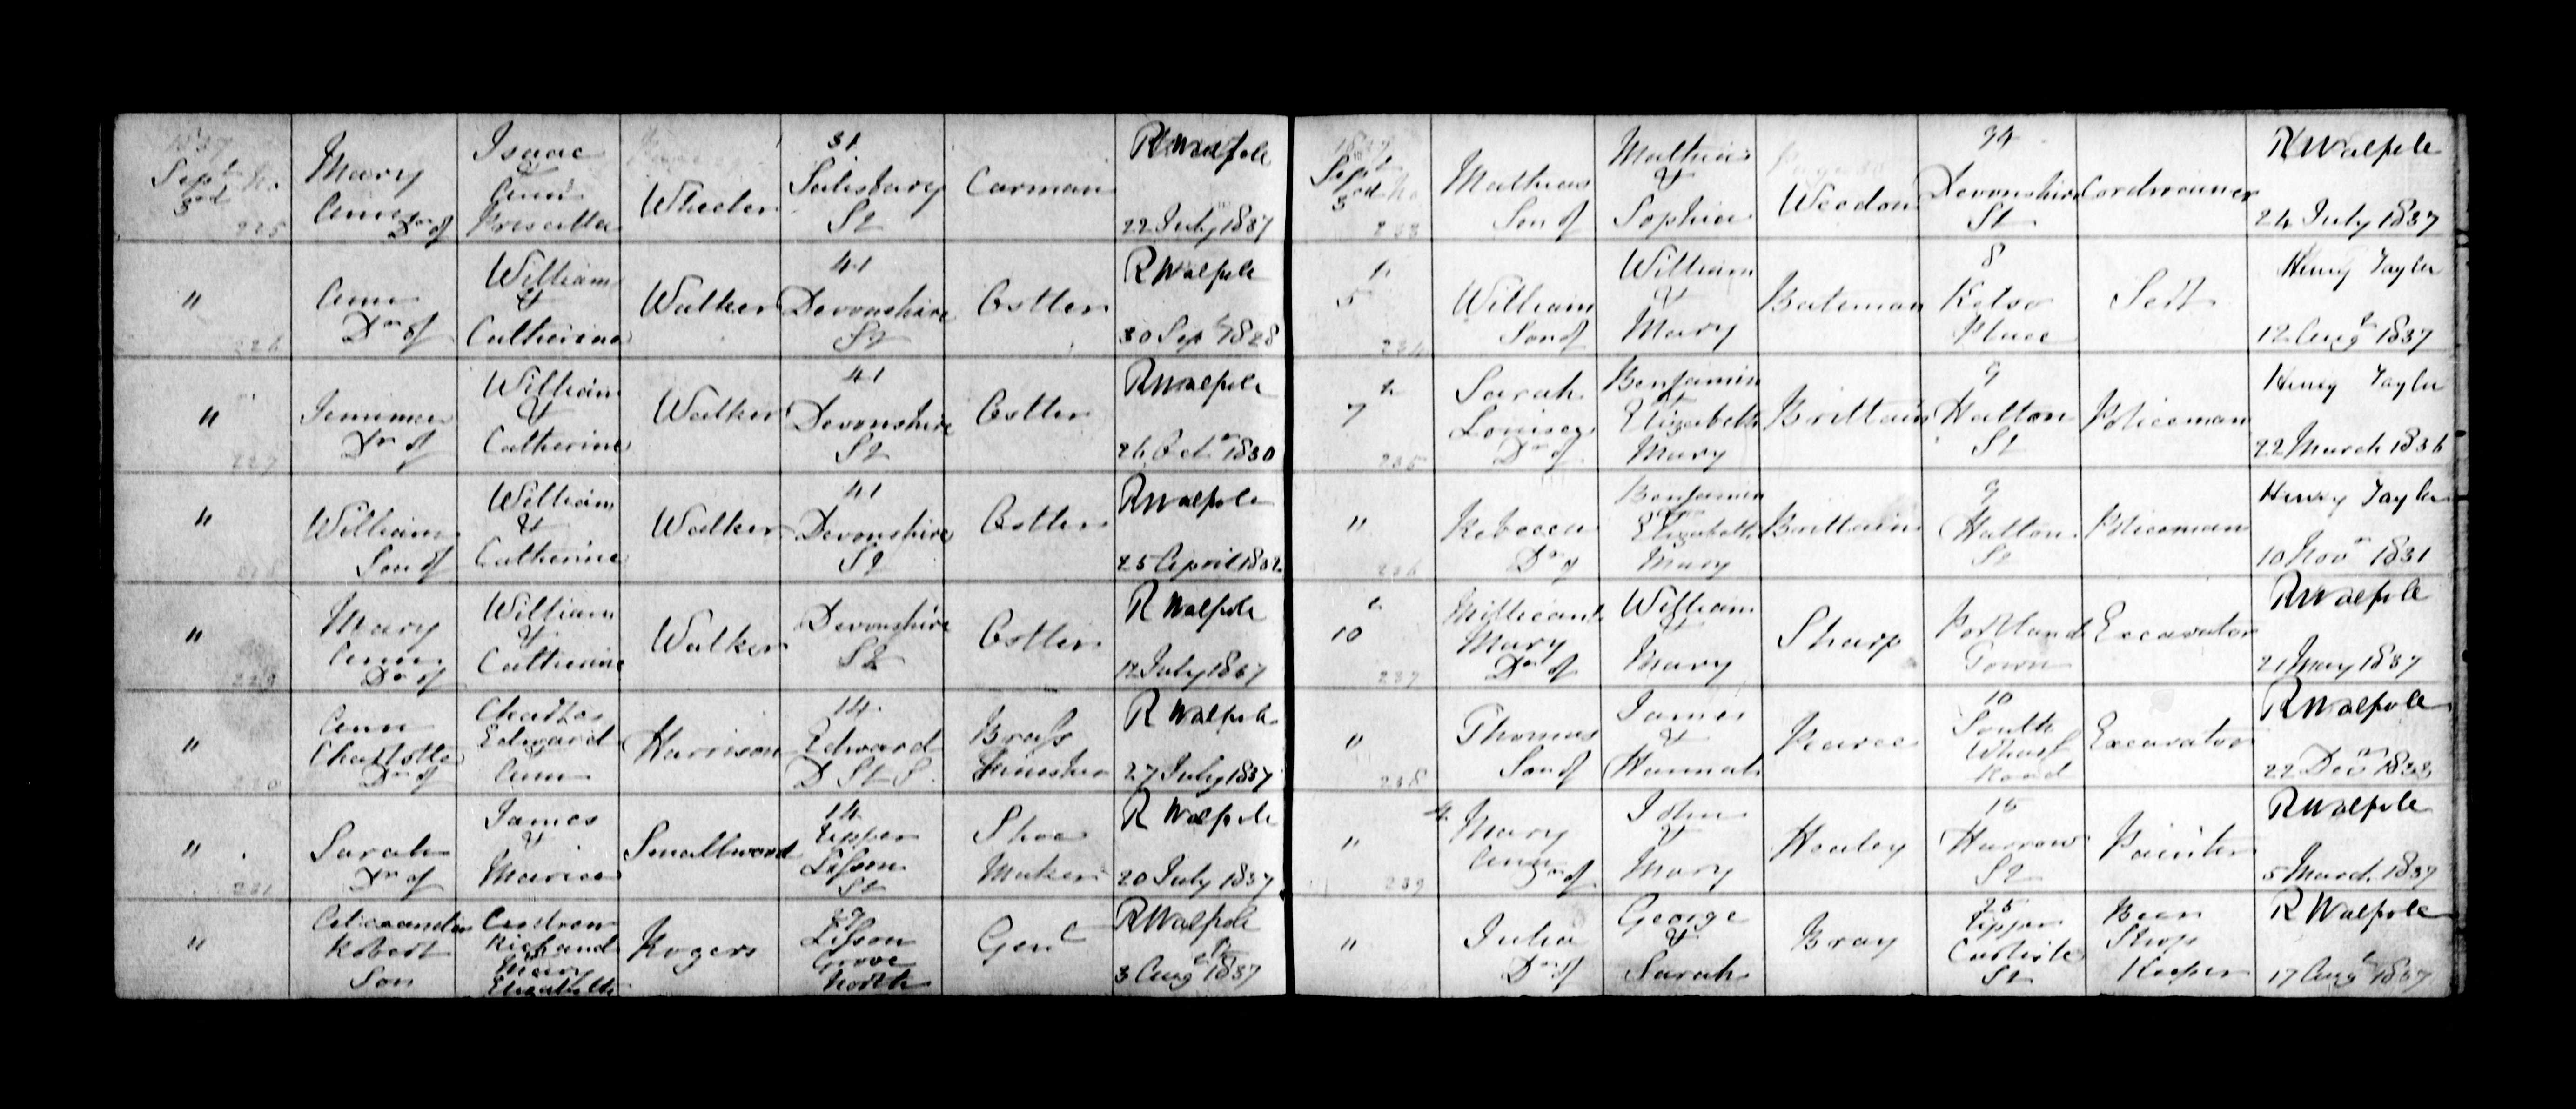 1837
Sept
3rd
225
Mary
Ann
Dr of
Isaac
&
Ann
Priscilla
Wheeler
31
Salisbury
St
Carman
R Walpole
22 July 1837
"
226
Ann
Dr of
William
&
Catherine
Walker
41
Devonshire
St
Ostler
R Walpole
30 Sepr 1828
"
227
Jemima
Dr of
William
&
Catherine
Walker
41
Devonshire
St
Ostler
R Walpole
26 Octr 1830
"
228
William
Son of
William
&
Catherine
Walker
41
Devonshire
St
Ostler
R Walpole
25 April 1832
"
229
Mary
Ann
Dr of
William
&
Catherine
Walker
Devonshire
St
Ostler
R Walpole
12 July 1837
"
230
Ann
Charlotte
Dr of
Charles
Edward
&
Ann
Harrison
14
Edward
St
Brass
Finisher
R Walpole
27 July 1837
"
231
Sarah
Dr of
James
&
Maria
Smallwood
14
Upper
Lisson
St
Shoe
Maker
R Walpole
20 July 1837
"
Alexander
Robert
Son
Andrew
Richard
Mary
Elizabeth
Rogers
Lisson
Grove
North
Genl
R Walpole
3 Augst 1837
1837
Sept
3rd
233
Mathias
Son of
Mathias
&
Sophia
Weedon
34
Devonshire
St
Cordwainer
R Walpole
24 July 1837
5
234
William
Son of
William
&
Mary
Bateman
8
Kelso
Place
Henry Taylor
12 Augt 1837
7
235
Sarah
Louisa
Dr of
Benjamin
&
Elizabeth
Mary
Brittain
9
Halton
St
Policeman
Henry Taylor
22 March 1836
"
236
Rebecca
Dr of
Benjamin
&
Elizabeth
Mary
Brittain
9
Halton
St
Policeman
Henry Taylor
10 Novr 1831
10
237
Millicent
Mary
Dr of
William
&
Mary
Sharp
Portland
Town
Excavator
R Walpole
21 May 1837
"
238
Thomas
Son of
James
&
Hannah
Pearce
10
South
Wharf
Road
Excavator
R Walpole
22 Decr 1833
"
239
Mary
Ann
Dr of
John
&
Mary
Healey
15
Harrow
St
Painter
R Walpole
5 March 1837
"
Julia
Dr of
George
&
Sarah
Bray
25
Upper
Carlisle
St
Beer
Shop
Keeper
R Walpole
17 Augt 1837